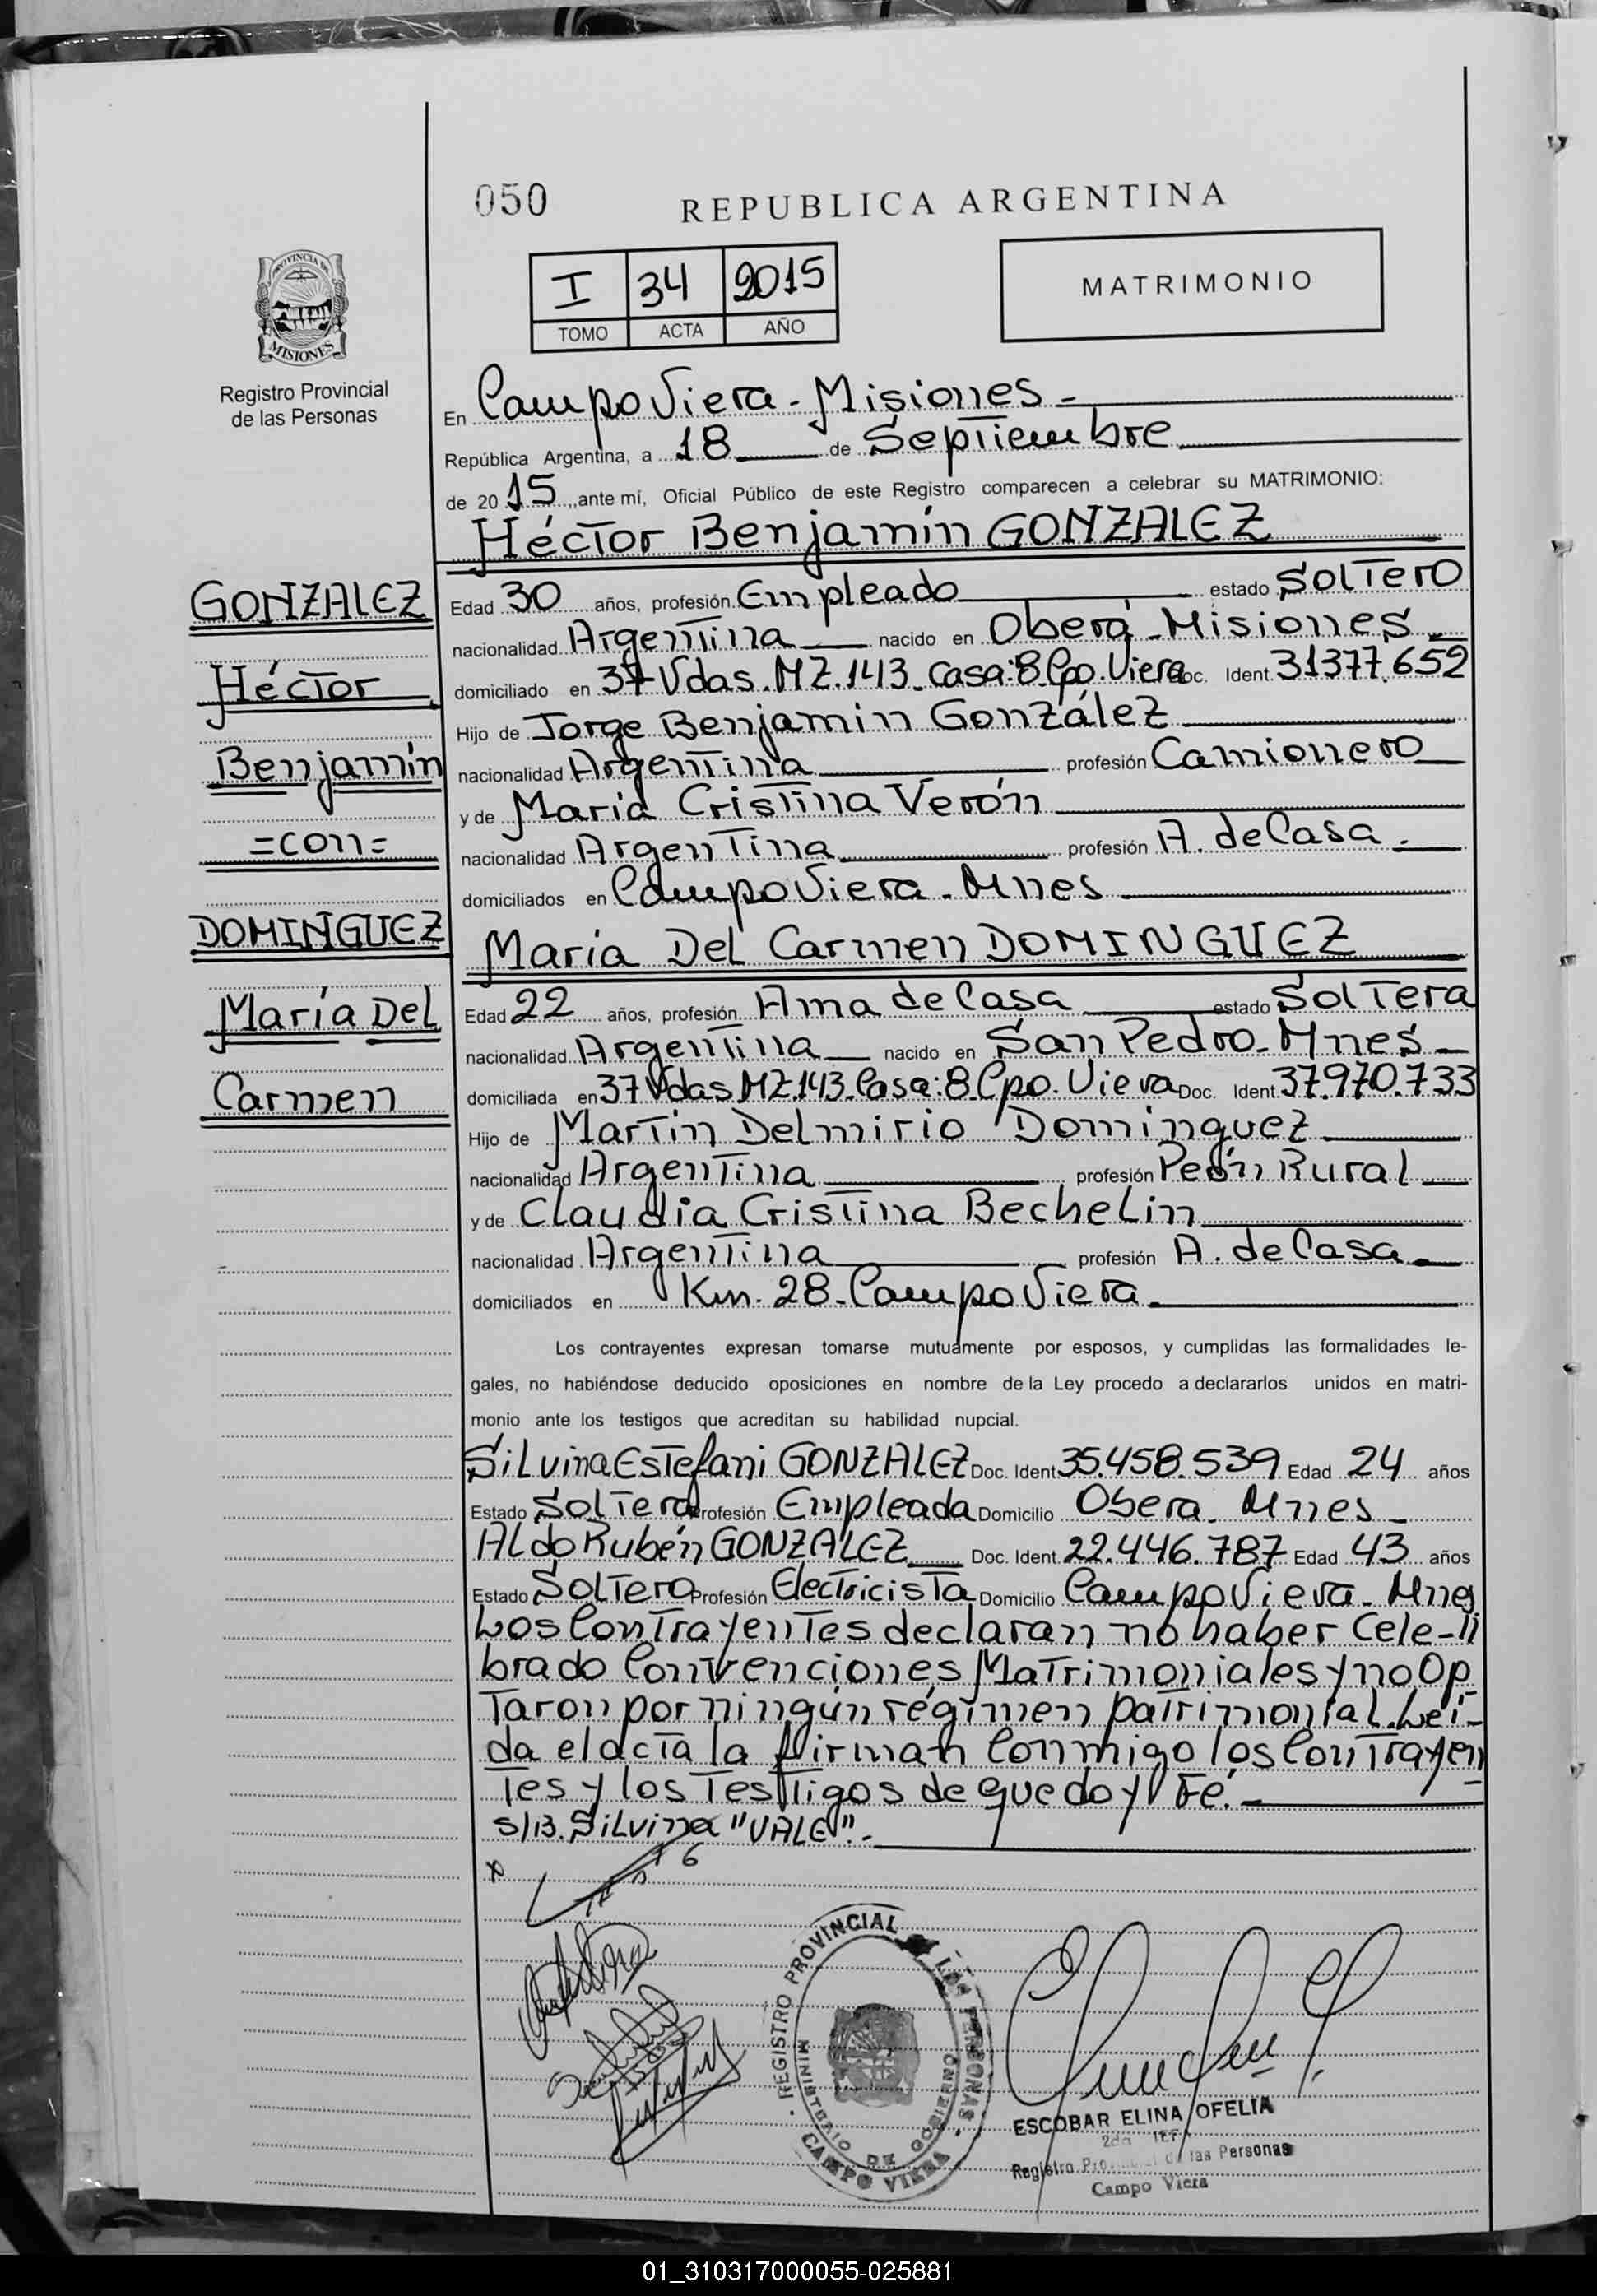 050
REPUBLICA ARGENTINA
PROVINCIA DE
MISIONES
Registro Provincial
de las Personas
I 34 2015
TOMO ACTA AÑO
MATRIMONIO
En Campo Viera - Misiones -
República Argentina, a 18 de Septiembre
de 20 15, ante mí, Oficial Público de este Registro comparecen a celebrar su MATRIMONIO:
Héctor Benjamín GONZALEZ
GONZALEZ
Héctor
Benjamín
=con=
DOMINGUEZ
María Del
Carmen
Edad 30 años, profesión Empleado estado Soltero
nacionalidad Argentina nacido en Oberá - Misiones -
domiciliado en 37 Vdas. MZ.143 - Casa: 8. Cpo. Viera Doc. Ident. 31377.652
Hijo de Jorge Benjamin González
nacionalidad Argentina profesión Camionero
y de María Cristina Verón
nacionalidad Argentina profesión A. de Casa -
domiciliados en Campo Viera - Mnes
María Del Carmen DOMINGUEZ
Edad 22 años, profesión Ama de Casa estado Soltera
nacionalidad Argentina nacido en San Pedro - Mnes -
domiciliada en 37 Vdas MZ.143 - Casa: 8. Cpo. Viera Doc. Ident. 37.970.733
Hijo de Martin Delmirio Dominguez
nacionalidad Argentina profesión Peón Rural
y de Claudia Cristina Bechelin
nacionalidad Argentina profesión A. de Casa
domiciliados en Km. 28 - Campo Viera
Los contrayentes expresan tomarse mutuamente por esposos, y cumplidas las formalidades le-
gales, no habiéndose deducido oposiciones en nombre de la Ley procedo a declararlos unidos en matri-
monio ante los testigos que acreditan su habilidad nupcial.
Silvina Estefani GONZALEZ Doc. Ident. 35.458.539 Edad 24 años
Estado Soltera Profesión Empleada Domicilio Obera - Mnes -
Aldo Rubén GONZALEZ Doc. Ident. 22.446.787 Edad 43 años
Estado Soltero Profesión Electricista Domicilio Campo Viera - Mnes
Los Contrayentes declaran no haber Cele-
brado Convenciones Matrimoniales y no Op
taron por ningún régimen patrimonial. Leí-
da el acta la firman Conmigo los Contrayen
tes y los Testigos de que doy Fé. -
S/B. Silvina "VALE". -
REGISTRO PROVINCIAL DE LAS PERSONAS
MINISTERIO DE GOBIERNO
CAMPO VIERA
ESCOBAR ELINA OFELIA
2da JEFA
Registro Provincial de las Personas
Campo Viera
01_310317000055-025881